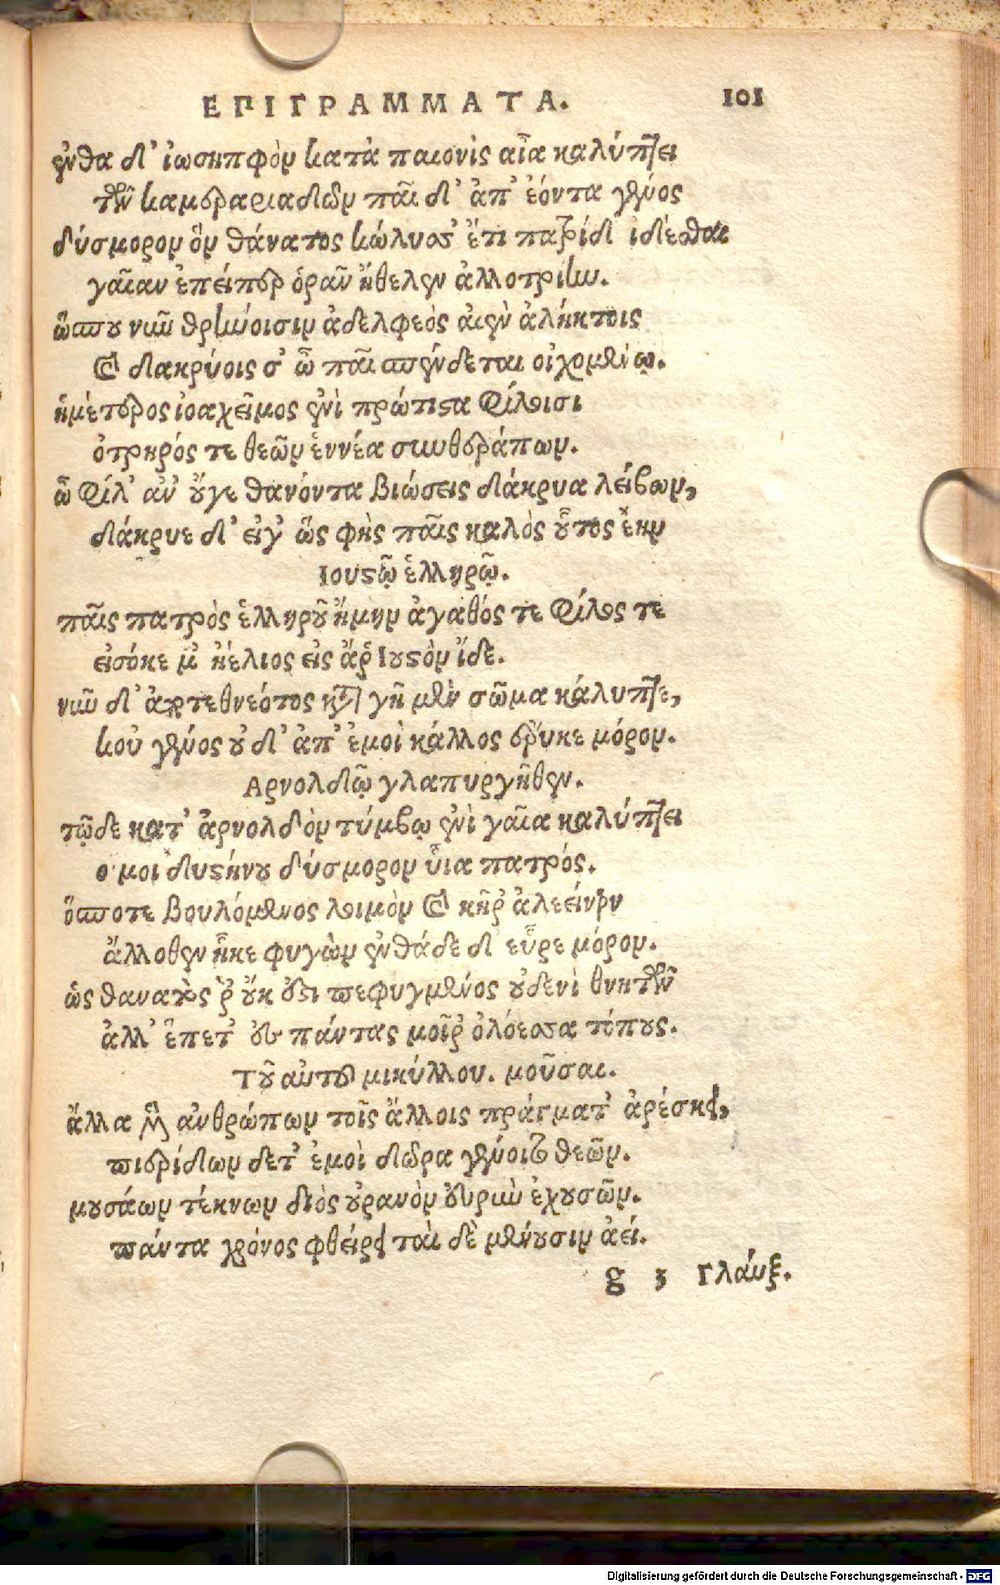 ΕΠΙΓΡΑΜΜΑΤΑ. 101
ἔνθα δ' ἰωσηπφὸν κατὰ παιονὶς αἶα καλύπτει
τῶν καμεραριαδῶν παῖ δ' ἀπ' ἐόντα γένος
δύσμορον ὃν θάνατος κώλυσ' ἔτι πατρίδ' ἰδέσθαι
γαῖαν ἐπείπερ ὁρᾶν ἤθελεν ἀλλοτρίην.
ὥσπου νῦν θρήνοισιν ἀδελφεὸς αἰὲν ἀλήκτοις
καὶ δακρύοις σ' ὦ παῖ σπένδεται οἰχομένῳ.
ἡμέτερος ἰοαχεῖμος ἐνὶ πρώτιστα φίλοισι
ὀτρηρός τε θεῶν ἐννέα συνθεράπων.
ὦ φίλ' ἀν' οὔγε θανόντα βιώσεις δάκρυα λείβων,
δάκρυε δ' εἰγ' ὥς φὴς παῖς καλὸς οὗτος ἔην
Ιουστῷ ἑλληρῷ.
παῖς πατρὸς ἑλληροῦ ἤμην ἀγαθός τε φίλος τε
εἰσόκε μ' ἠέλιος εἰς ἄρ' Ιουστὸν ἴδε.
νῦν δ' ἀρτεθνεότος κατὰ γῆ μὲν σῶμα κάλυπτε,
κοὐ γένος οὐδ' ἀπ' ἐμοὶ κάλλος ἔρυκε μόρον.
Αρνολδιῷ γλαπυργῆθεν.
τῷδε κατ' ἀρνολδὸν τύμβῳ ἐνὶ γαῖα καλύπτει
ο μοι δυστήνου δύσμορον υἷα πατρός.
ὅσποτε βουλόμενος λοιμὸν καὶ κῆρ' ἀλεείνειν
ἄλλοθεν ἧκε φυγὼν ἐνθάδε δ' εὗρε μόρον.
ὡς θανατος ῥ' οὔκ ἐστι πεφυγμένος οὐδενὶ θνητῶν
ἀλλ' ἕπετ' εἰς πάντας μοῖρ' ὀλόεσσα τόπους.
Τοῦ αὐτοῦ μικύλλου. μοῦσαι.
ἄλλα μὲν ἀνθρώπων τοῖς ἄλλοις πράγματ' ἀρέσκει,
πιερίδων δετ' ἐμοὶ δῶρα γένοιτο θεῶν.
μουσάων τέκνων διὸς οὐρανὸν εὐρὺν ἐχουσῶν.
πάντα χρόνος φθείρει ταὶ δὲ μένουσιν ἀεί.
g 3 Γλαύξ.
Digitalisierung gefördert durch die Deutsche Forschungsgemeinschaft - DFG